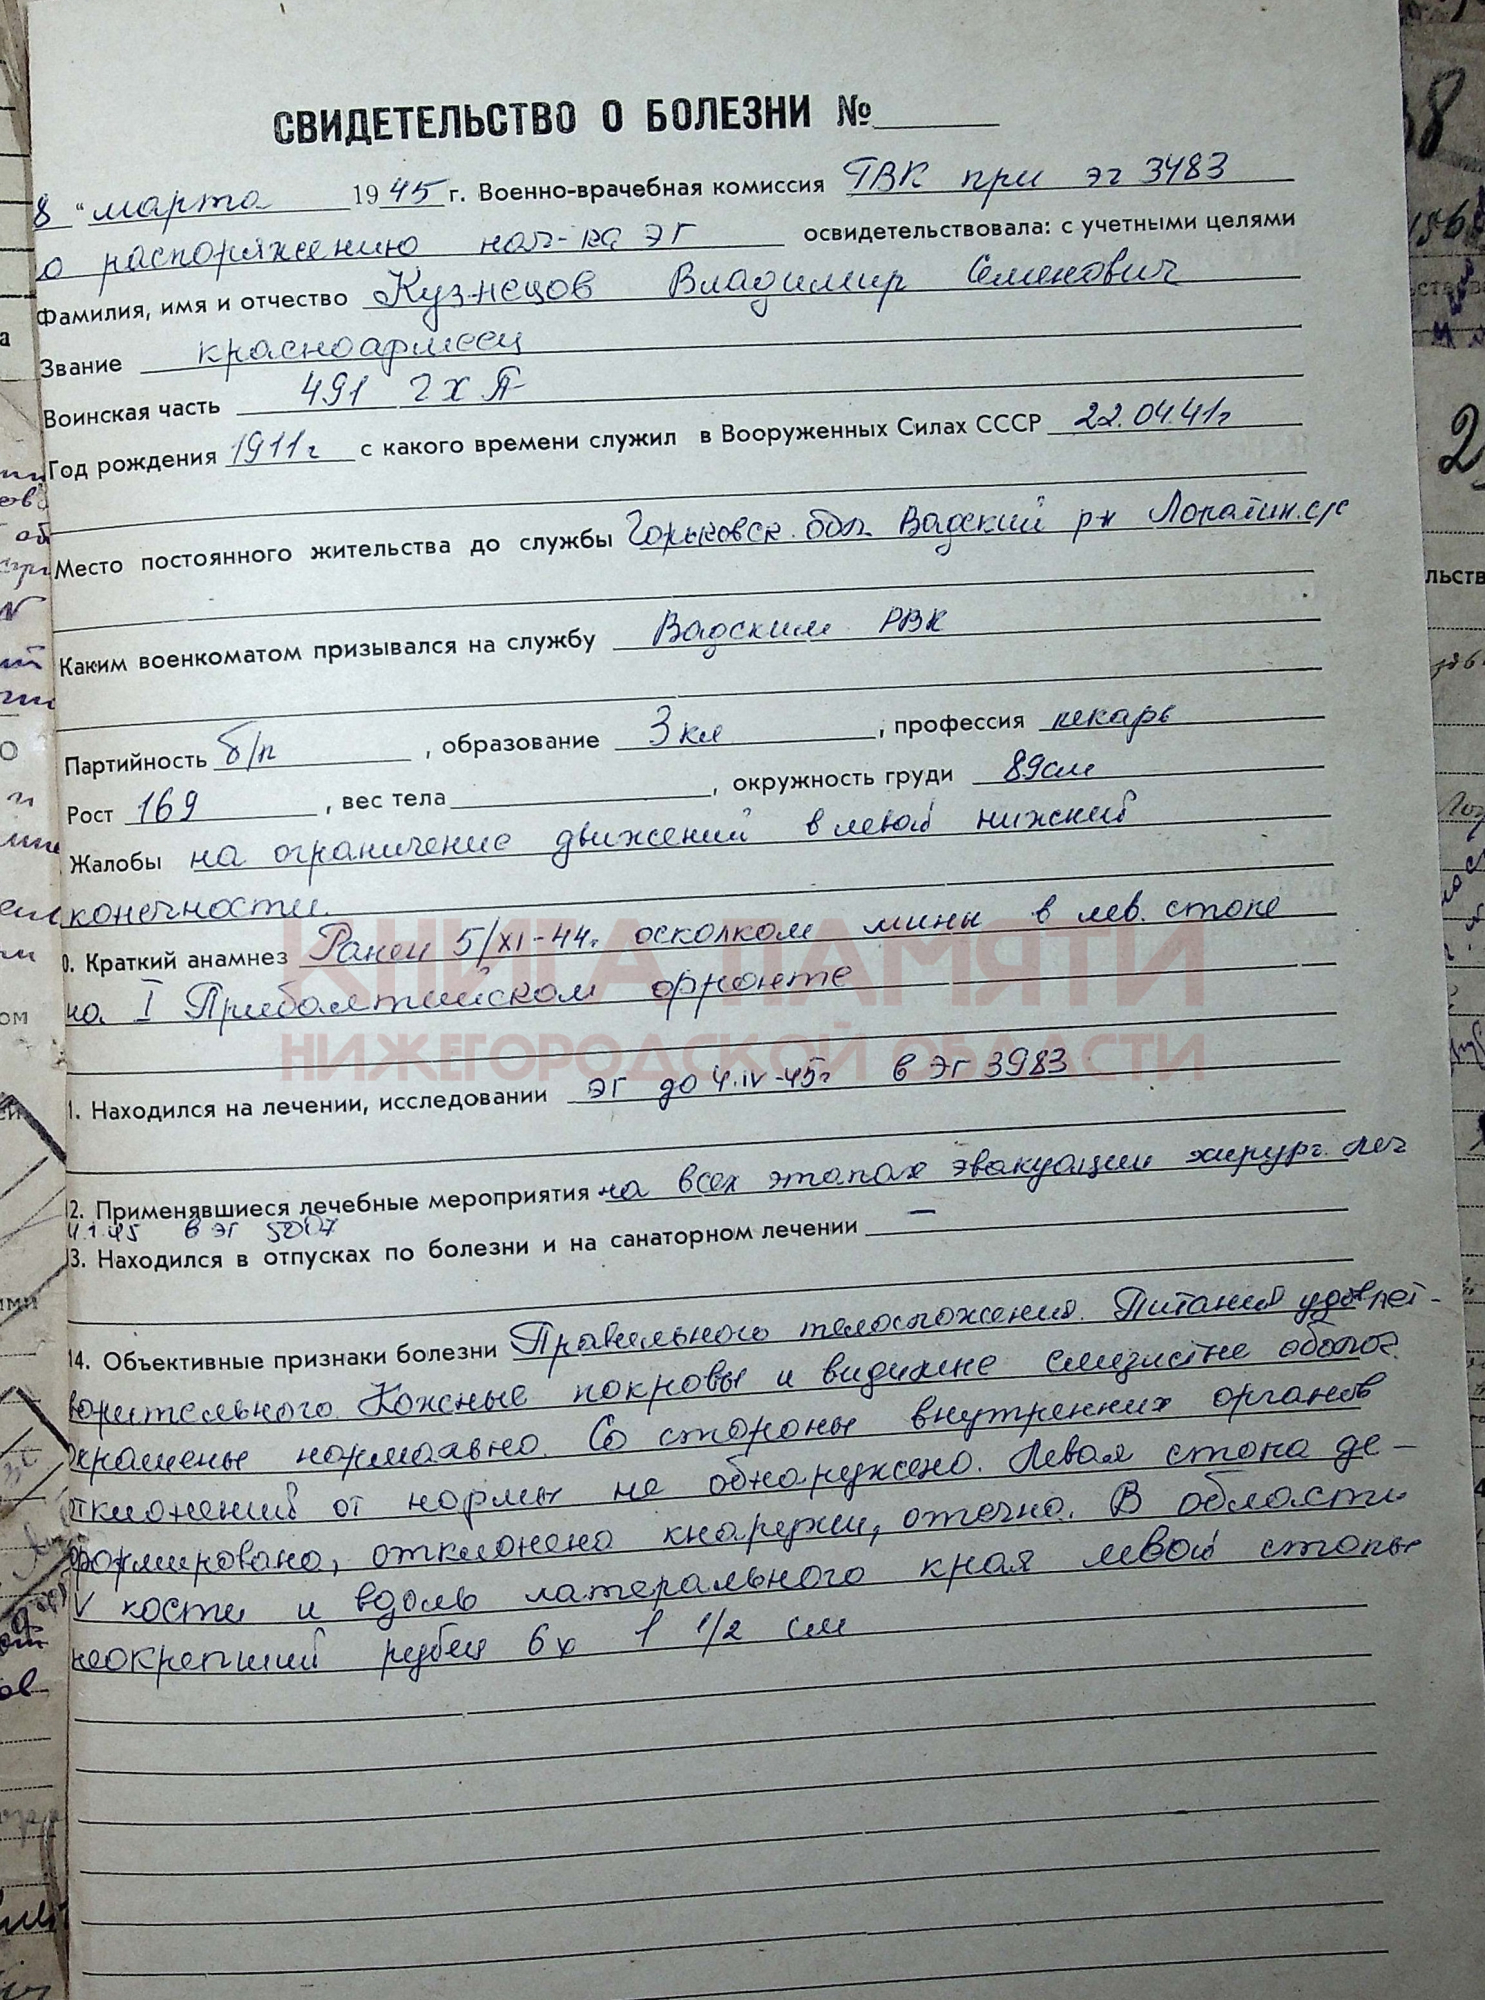 СВИДЕТЕЛЬСТВО О БОЛЕЗНИ №
8 " марта 1945 г. Военно-врачебная комиссия ГВК при эг 3483
о распоряжению нач-ка ЭГ освидетельствовала: с учетными целями
Фамилия, имя и отчество Кузнецов Владимир Семенович
Звание красноармеец
Воинская часть 491
Год рождения 1911г с какого времени служил в Вооруженных Силах СССР 22.04.41г
Место постоянного жительства до службы Горьковск. обл. Вадский р-н Лопатин. с/с
Каким военкоматом призывался на службу Вадским РВК
Партийность б/п , образование 3 кл , профессия пекарь
Рост 169 , вес тела , окружность груди 89см
Жалобы на ограничение движений в левой нижней
конечности.
0. Краткий анамнез Ранен 5/XI-44г. осколком мины в лев. стопе
на I Прибалтийском фронте
КНИГА ПАМЯТИ
НИЖЕГОРОДСКОЙ ОБЛАСТИ
1. Находился на лечении, исследовании эг до 4.IV-45г в ЭГ 3983
2. Применявшиеся лечебные мероприятия на всех этапах эвакуации хирург. леч
4.1.45 в эг 5007
3. Находился в отпусках по болезни и на санаторном лечении —
14. Объективные признаки болезни Правильного телосложения. Питания удовлет-
ворительного. Кожные покровы и видимые слизистые оболоч.
окрашены нормально. Со стороны внутренних органов
отклонений от нормы не обнаружено. Левая стопа де-
формирована, отклонена кнаружи, отечна. В области
V кости и вдоль латерального края левой стопы
неокрепший рубец 6х 1 1/2 см